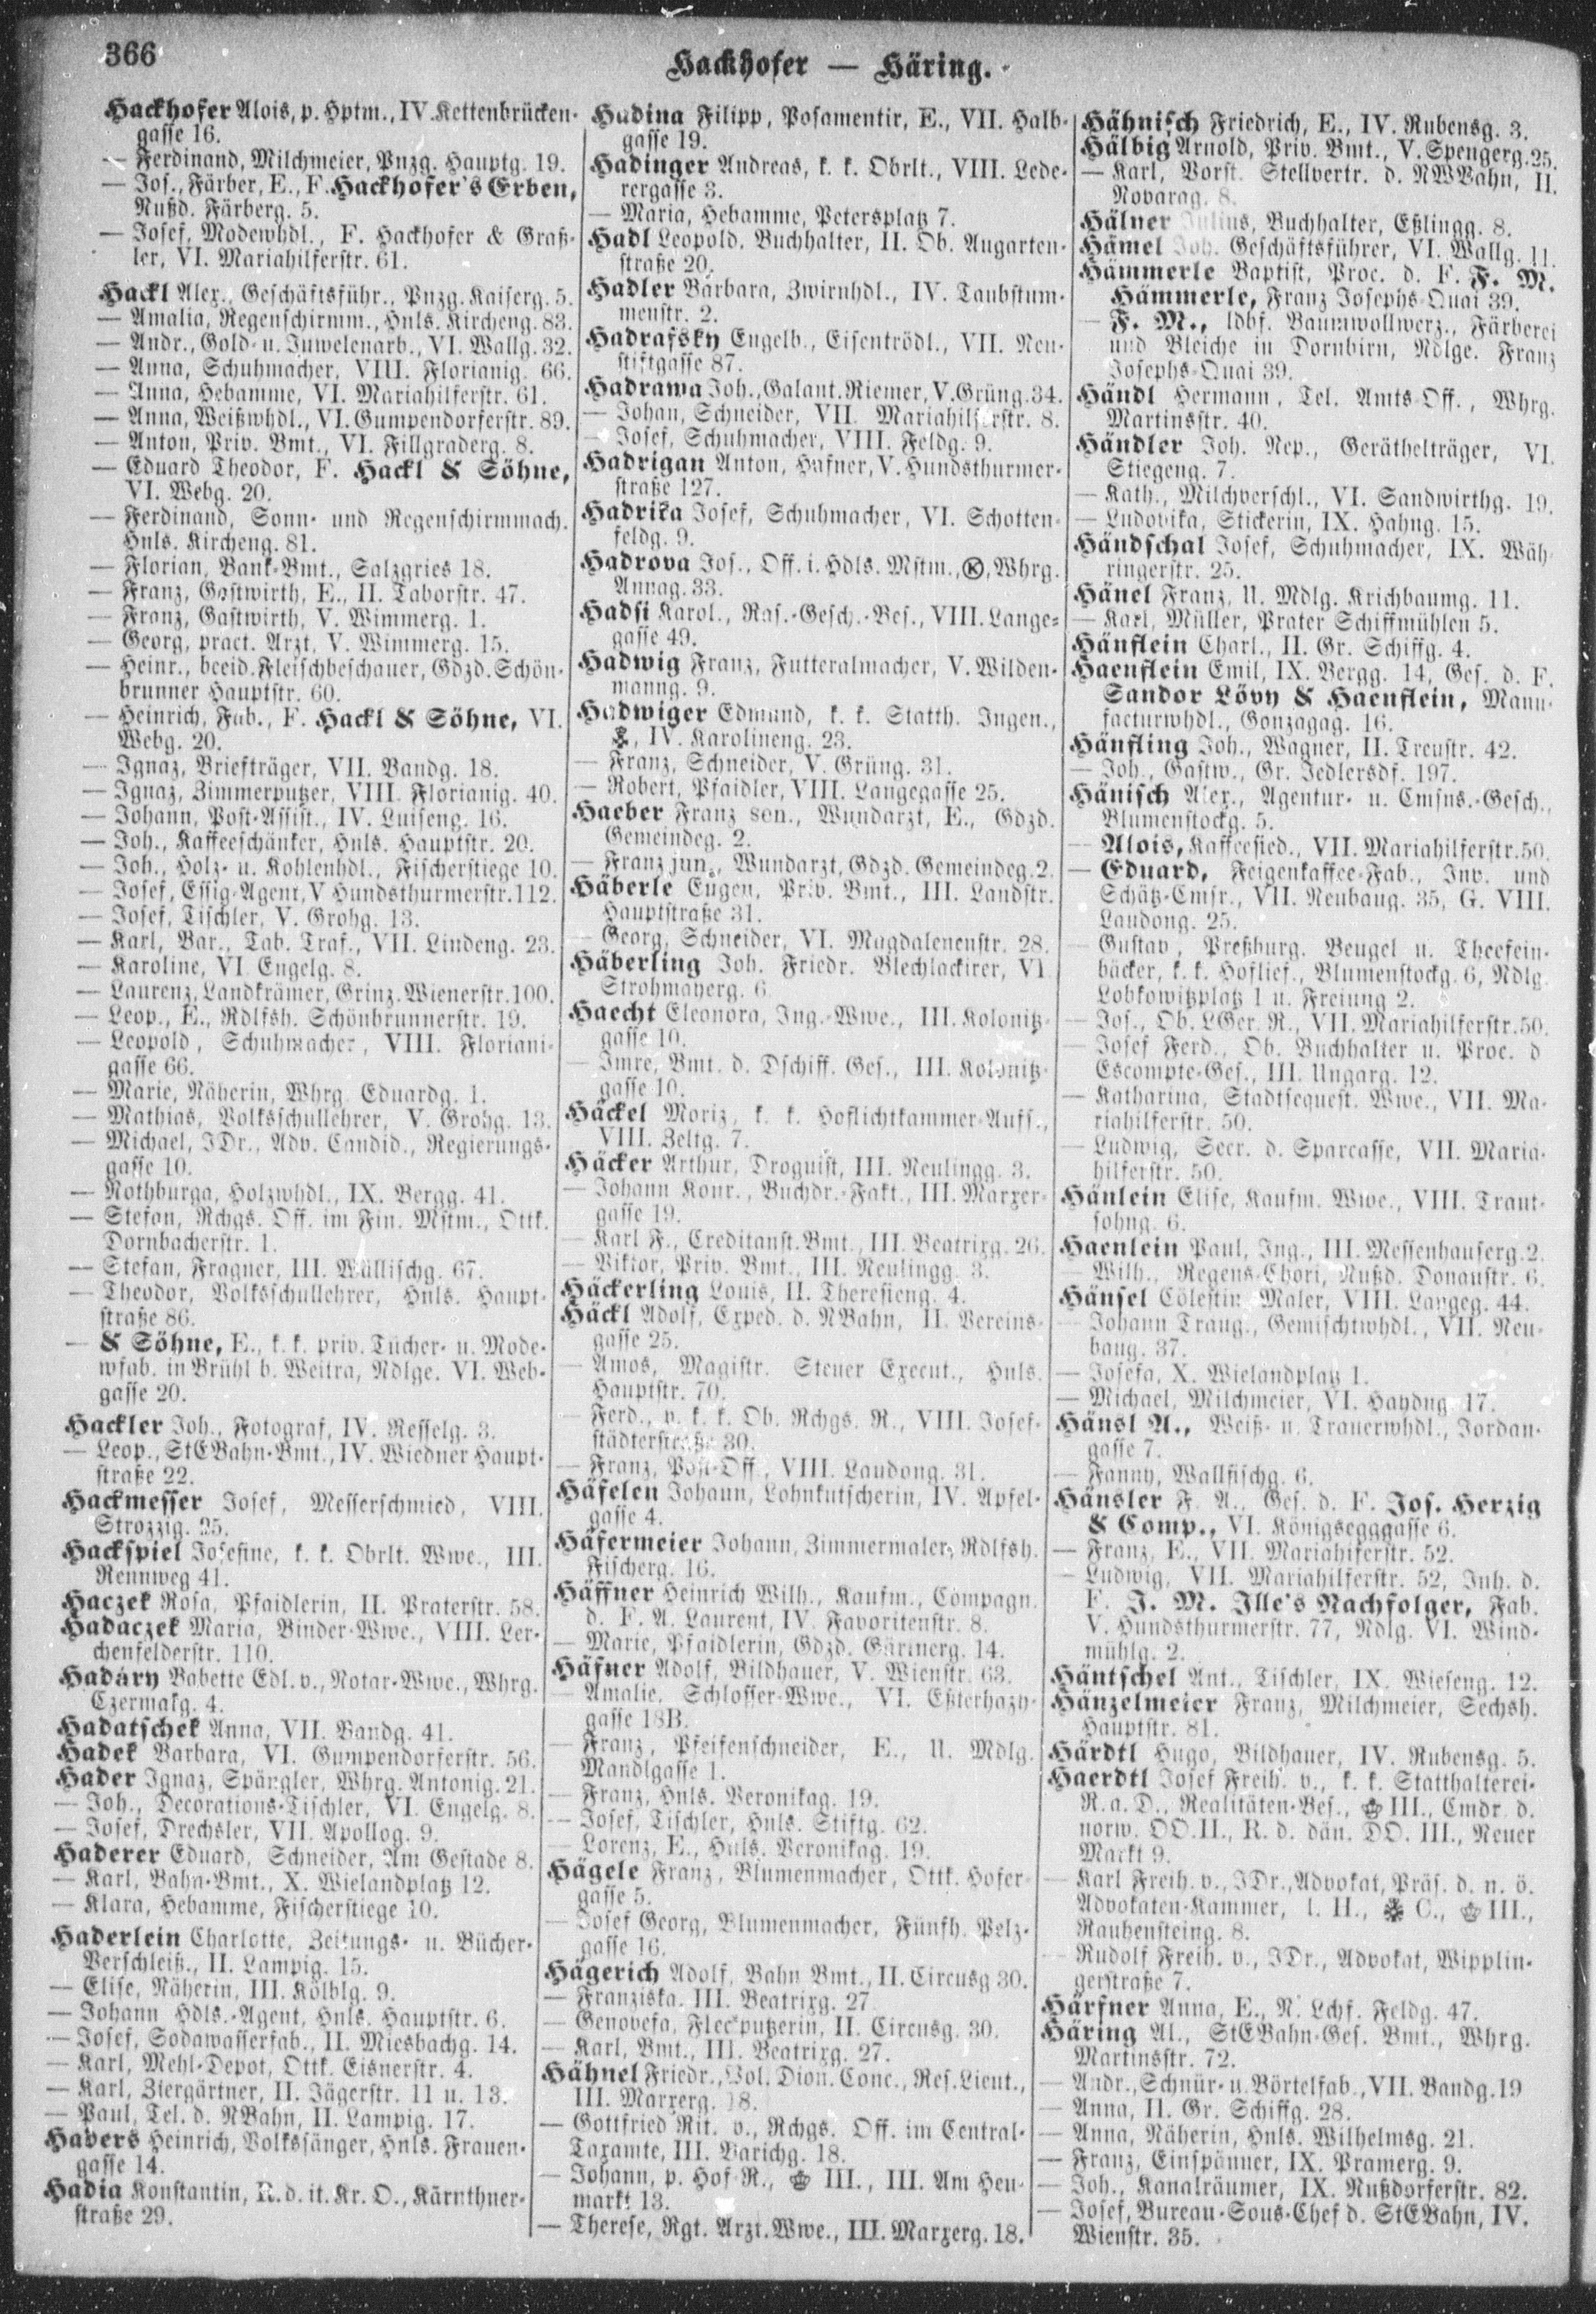 366
Hackhofer — Häring.
Hackhofer Alois, p. Hptm., IV. Kettenbrücken-
gasse 16.
— Ferdinand, Milchmeier, Pnzg. Hauptg. 19.
— Jos., Färber, E., F. Hackhofer's Erben,
Nußd. Färberg. 5.
— Josef, Modewhdl., F. Hackhofer & Graß-
ler, VI. Mariahilferstr. 61.
Hackl Alex., Geschäftsführ., Pnzg. Kaiserg. 5.
— Amalia, Regenschirmm., Hnls. Kircheng. 83.
— Andr., Gold- u. Juwelenarb., VI. Wallg. 32.
— Anna, Schuhmacher, VIII. Florianig. 66.
— Anna, Hebamme, VI. Mariahilferstr. 61.
— Anna, Weißwhdl., VI. Gumpendorferstr. 89.
— Anton, Priv. Bmt., VI. Fillgraderg. 8.
— Eduard Theodor, F. Hackl & Söhne,
VI. Webg. 20.
— Ferdinand, Sonn- und Regenschirmmach.
Hnls. Kircheng. 81.
— Florian, Bank-Bmt., Salzgries 18.
— Franz, Gastwirth, E., II. Taborstr. 47.
— Franz, Gastwirth, V. Wimmerg. 1.
— Georg, pract. Arzt, V. Wimmerg. 15.
— Heinr., beeid. Fleischbeschauer, Gdzd. Schön-
brunner Hauptstr. 60.
— Heinrich, Fab., F. Hackl & Söhne, VI.
Webg. 20.
— Ignaz, Briefträger, VII. Bandg. 18.
— Ignaz, Zimmerputzer, VIII. Florianig. 40.
— Johann, Post-Assist., IV. Luiseng. 16.
— Joh., Kaffeeschänker, Hnls. Hauptstr. 20.
— Joh., Holz- u. Kohlenhdl., Fischerstiege 10.
— Josef, Essig-Agent, V Hundsthurmerstr. 112.
— Josef, Tischler, V. Grohg. 13.
— Karl, Bar., Tab. Traf., VII. Lindeng. 23.
— Karoline, VI Engelg. 8.
— Laurenz, Landkrämer, Grinz. Wienerstr. 100.
— Leop., E., Rdlfsh. Schönbrunnerstr. 19.
— Leopold, Schuhmacher, VIII. Floriani-
gasse 66.
— Marie, Näherin, Whrg. Eduardg. 1.
— Mathias, Volksschullehrer, V. Grohg. 13.
— Michael, JDr., Adv. Candid., Regierungs-
gasse 10.
— Nothburga, Holzwhdl., IX. Bergg. 41.
— Stefan, Rchgs. Off. im Fin. Mstm., Ottk.
Dornbacherstr. 1.
— Stefan, Fragner, III. Wüllischg. 67.
— Theodor, Volksschullehrer, Hnls. Haupt-
straße 86.
— & Söhne, E., k. k. priv. Tücher- u. Mode-
wfab. in Brühl b. Weitra, Ndlge. VI. Web-
gasse 20.
Hackler Joh., Fotograf, IV. Resselg. 3.
— Leop., StEBahn-Bmt., IV. Wiedner Haupt-
straße 22.
Hackmesser Josef, Messerschmied, VIII.
Strozzig. 25.
Hackspiel Josefine, k. k. Obrlt. Wwe., III.
Rennweg 41.
Haczek Rosa, Pfaidlerin, II. Praterstr. 58.
Hadaczek Maria, Binder-Wwe., VIII. Ler-
chenfelderstr. 110.
Hadáry Babette Edl. v., Notar-Wwe., Whrg.
Czermakg. 4.
Hadatschek Anna, VII. Bandg. 41.
Hadek Barbara, VI. Gumpendorferstr. 56.
Hader Ignaz, Spängler, Whrg. Antonig. 21.
— Joh., Decorations-Tischler, VI. Engelg. 8.
— Josef, Drechsler, VII. Apollog. 9.
Haderer Eduard, Schneider, Am Gestade 8.
— Karl, Bahn-Bmt., X. Wielandplatz 12.
— Klara, Hebamme, Fischerstiege 10.
Haderlein Charlotte, Zeitungs- u. Bücher-
Verschleiß., II. Lampig. 15.
— Elise, Näherin, III. Kölblg. 9.
— Johann Hdls.-Agent, Hnls. Hauptstr. 6.
— Josef, Sodawasserfab., II. Miesbachg. 14.
— Karl, Mehl-Depot, Ottk. Eisnerstr. 4.
— Karl, Ziergärtner, II. Jägerstr. 11 u. 13.
— Paul, Tel. d. NBahn, II. Lampig. 17.
Haders Heinrich, Volkssänger, Hnls. Frauen-
gasse 14.
Hadia Konstantin, R. d. it. Kr. O., Kärnthner-
straße 29.
Hadina Filipp, Posamentir, E., VII. Halb-
gasse 19.
Hadinger Andreas, k. k. Obrlt., VIII. Lede-
rergasse 3.
— Maria, Hebamme, Petersplatz 7.
Hadl Leopold, Buchhalter, II. Ob. Augarten-
straße 20.
Hadler Barbara, Zwirnhdl., IV. Taubstum-
menstr. 2.
Hadrafsky Engelb., Eisentrödl., VII. Neu-
stiftgasse 87.
Hadrawa Joh., Galant. Riemer, V. Grüng. 34.
— Johan, Schneider, VII. Mariahilferstr. 8.
— Josef, Schuhmacher, VIII. Feldg. 9.
Hadrigan Anton, Hafner, V. Hundsthurmer-
straße 127.
Hadrika Josef, Schuhmacher, VI. Schotten-
feldg. 9.
Hadrova Jos., Off. i. Hdls. Mstm., Ⓚ, Whrg.
Annag. 33.
Hadsi Karol., Ras.-Gesch.-Bes., VIII. Lange-
gasse 49.
Hadwig Franz, Futteralmacher, V. Wilden-
manng. 9.
Hadwiger Edmund, k. k. Statth. Ingen.,
, IV. Karolineng. 23.
— Franz, Schneider, V. Grüng. 31.
— Robert, Pfaidler, VIII. Langegasse 25.
Haeber Franz sen., Wundarzt, E., Gdzd.
Gemeindeg. 2.
— Franz jun., Wundarzt, Gdzd. Gemeindeg. 2.
Häberle Eugen, Priv. Bmt., III. Landstr.
Hauptstraße 31.
— Georg, Schneider, VI. Magdalenenstr. 28.
Häberling Joh. Friedr. Blechlackirer, VI
Strohmayerg. 6
Haecht Eleonora, Ing.-Wwe., III. Kolonitz-
gasse 10.
— Imre, Bmt. d. Dschiff. Ges., III. Kolonitz-
gasse 10.
Häckel Moriz, k. k. Hoflichtkammer-Aufs.,
VIII. Zeltg. 7.
Häcker Arthur, Droguist, III. Neulingg. 3.
— Johann Konr., Buchdr.-Fakt., III. Marxer-
gasse 19.
— Karl F., Creditanst. Bmt., III. Beatrixg. 26.
— Viktor, Priv. Bmt., III. Neulingg. 3.
Häckerling Louis, II. Theresieng. 4.
Häckl Adolf, Exped. d. NBahn, II. Vereins-
gasse 25.
— Amos, Magistr. Steuer Execut., Hnls.
Hauptstr. 70.
— Ferd., v. k. k. Ob. Rchgs. R., VIII. Josef-
städterstraße 30.
— Franz, Post-Off., VIII. Laudong. 31.
Häfelen Johann, Lohnkutscherin, IV. Apfel-
gasse 4.
Häfermeier Johann, Zimmermaler, Rdlfsh.
Fischerg. 16.
Häffner Heinrich Wilh., Kaufm., Compagn.
d. F. A. Laurent, IV. Favoritenstr. 8.
— Marie, Pfaidlerin, Gdzd. Gärtnerg. 14.
Häfner Adolf, Bildhauer, V. Wienstr. 63.
— Amalie, Schlosser-Wwe., VI. Eßterhazy-
gasse 18B.
— Franz, Pfeifenschneider, E., U. Mdlg.
Mandlgasse 1.
— Franz, Hnls. Veronikag. 19.
— Josef, Tischler, Hnls. Stiftg. 62.
— Lorenz, E., Hnls. Veronikag. 19.
Hägele Franz, Blumenmacher, Ottk. Hofer-
gasse 5.
— Josef Georg, Blumenmacher, Fünfh. Pelz-
gasse 16.
Hägerich Adolf, Bahn Bmt., II. Circusg 30.
— Franziska, III. Beatrixg. 27
— Genovefa, Fleckputzerin, II. Circusg. 30.
— Karl, Bmt., III. Beatrixg. 27.
Hähnel Friedr., Pol. Dion. Conc., Res. Lieut.,
III. Marxerg. 18.
— Gottfried Rit. v., Rchgs. Off. im Central-
Taxamte, III. Barichg. 18.
— Johann, p. Hof R., III., III. Am Heu-
markt 13.
— Therese, Rgt. Arzt. Wwe., III. Marxerg. 18.
Hähnisch Friedrich, E., IV. Rubensg. 3.
Hälbig Arnold, Priv. Bmt., V. Spengerg. 25.
— Karl, Vorst. Stellvertr. d. NWBahn, II.
Novarag. 8.
Hälner Julius, Buchhalter, Eßlingg. 8.
Hämel Joh. Geschäftsführer, VI. Wallg. 11.
Hämmerle Baptist, Proc. d. F. F. M.
Hämmerle, Franz Josephs-Quai 39.
— F. M., ldbf. Baumwollwerz., Färberei
und Bleiche in Dornbirn, Ndlge. Franz
Josephs-Quai 39.
Händl Hermann, Tel. Amts-Off., Whrg.
Martinsstr. 40.
Händler Joh. Nep., Geräthelträger, VI.
Stiegeng. 7.
— Kath., Milchverschl., VI. Sandwirthg. 19.
— Ludovika, Stickerin, IX. Hahng. 15.
Händschal Josef, Schuhmacher, IX. Wäh-
ringerstr. 25.
Hänel Franz, U. Mdlg. Krichbaumg. 11.
— Karl, Müller, Prater Schiffmühlen 5.
Hänflein Charl., II. Gr. Schiffg. 4.
Haenflein Emil, IX. Bergg. 14, Ges. d. F.
Sandor Lövy & Haenflein, Manu-
facturwhdl., Gonzagag. 16.
Hänfling Joh., Wagner, II. Treustr. 42.
— Joh., Gastw., Gr. Jedlersdf. 197.
Hänisch Alex., Agentur- u. Cmsns.-Gesch.,
Blumenstockg. 5.
— Alois, Kaffeesied., VII. Mariahilferstr. 50.
— Eduard, Feigenkaffee-Fab., Inv. und
Schätz-Cmsr., VII. Neubaug. 35, G. VIII.
Laudong. 25.
— Gustav, Preßburg. Beugel u. Theefein-
bäcker, k. k. Hoflief., Blumenstockg. 6, Ndlg.
Lobkowitzplatz 1 u. Freiung 2.
— Jos., Ob. LGer. R., VII. Mariahilferstr. 50.
— Josef Ferd., Ob. Buchhalter u. Proc. d
Escompte-Ges., III. Ungarg. 12.
— Katharina, Stadtsequest. Wwe., VII. Ma-
riahilferstr. 50.
— Ludwig, Secr. d. Sparcasse, VII. Maria-
hilferstr. 50.
Hänlein Elise, Kaufm. Wwe., VIII. Traut-
sohng. 6.
Haenlein Paul, Ing., III. Messenhauserg. 2.
— Wilh., Regens-Chori, Nußd. Donaustr. 6.
Hänsel Cölestin Maler, VIII. Langeg. 44.
— Johann Traug., Gemischtwhdl., VII. Neu-
baug. 37.
— Josefa, X. Wielandplatz 1.
— Michael, Milchmeier, VI. Haydng. 17.
Hänsl A., Weiß- u. Trauerwhdl., Jordan-
gasse 7.
— Fanny, Wallfischg. 6.
Hänsler F. A., Ges. d. F. Jos. Herzig
& Comp., VI. Königsegggasse 6.
— Franz, E., VII. Mariahiferstr. 52.
— Ludwig, VII. Mariahilferstr. 52, Inh. d.
F. J. M. Ille's Nachfolger, Fab.
V. Hundsthurmerstr. 77, Ndlg. VI. Wind-
mühlg. 2.
Häntschel Ant., Tischler, IX. Wieseng. 12.
Hänzelmeier Franz, Milchmeier, Sechsh.
Hauptstr. 81.
Härdtl Hugo, Bildhauer, IV. Rubensg. 5.
Haerdtl Josef Freih. v., k. k. Statthalterei-
R. a. D., Realitäten-Bes., III., Cmdr. d.
norw. OO. II., R. d. dän. DO. III., Neuer
Markt 9.
— Karl Freih. v., JDr., Advokat, Präs. d. n. ö.
Advokaten-Kammer, l. H., C., III.,
Rauhensteing. 8.
— Rudolf Freih. v., JDr., Advokat, Wipplin-
gerstraße 7.
Härfner Anna, E., N. Lchf. Feldg. 47.
Häring Al., StEBahn-Ges. Bmt., Whrg.
Martinsstr. 72.
— Andr., Schnür- u. Börtelfab., VII. Bandg. 19
— Anna, II. Gr. Schiffg. 28.
— Anna, Näherin, Hnls. Wilhelmsg. 21.
— Franz, Einspänner, IX. Pramerg. 9.
— Joh., Kanalräumer, IX. Nußdorferstr. 82.
— Josef, Bureau-Sous-Chef d. StEBahn, IV.
Wienstr. 35.